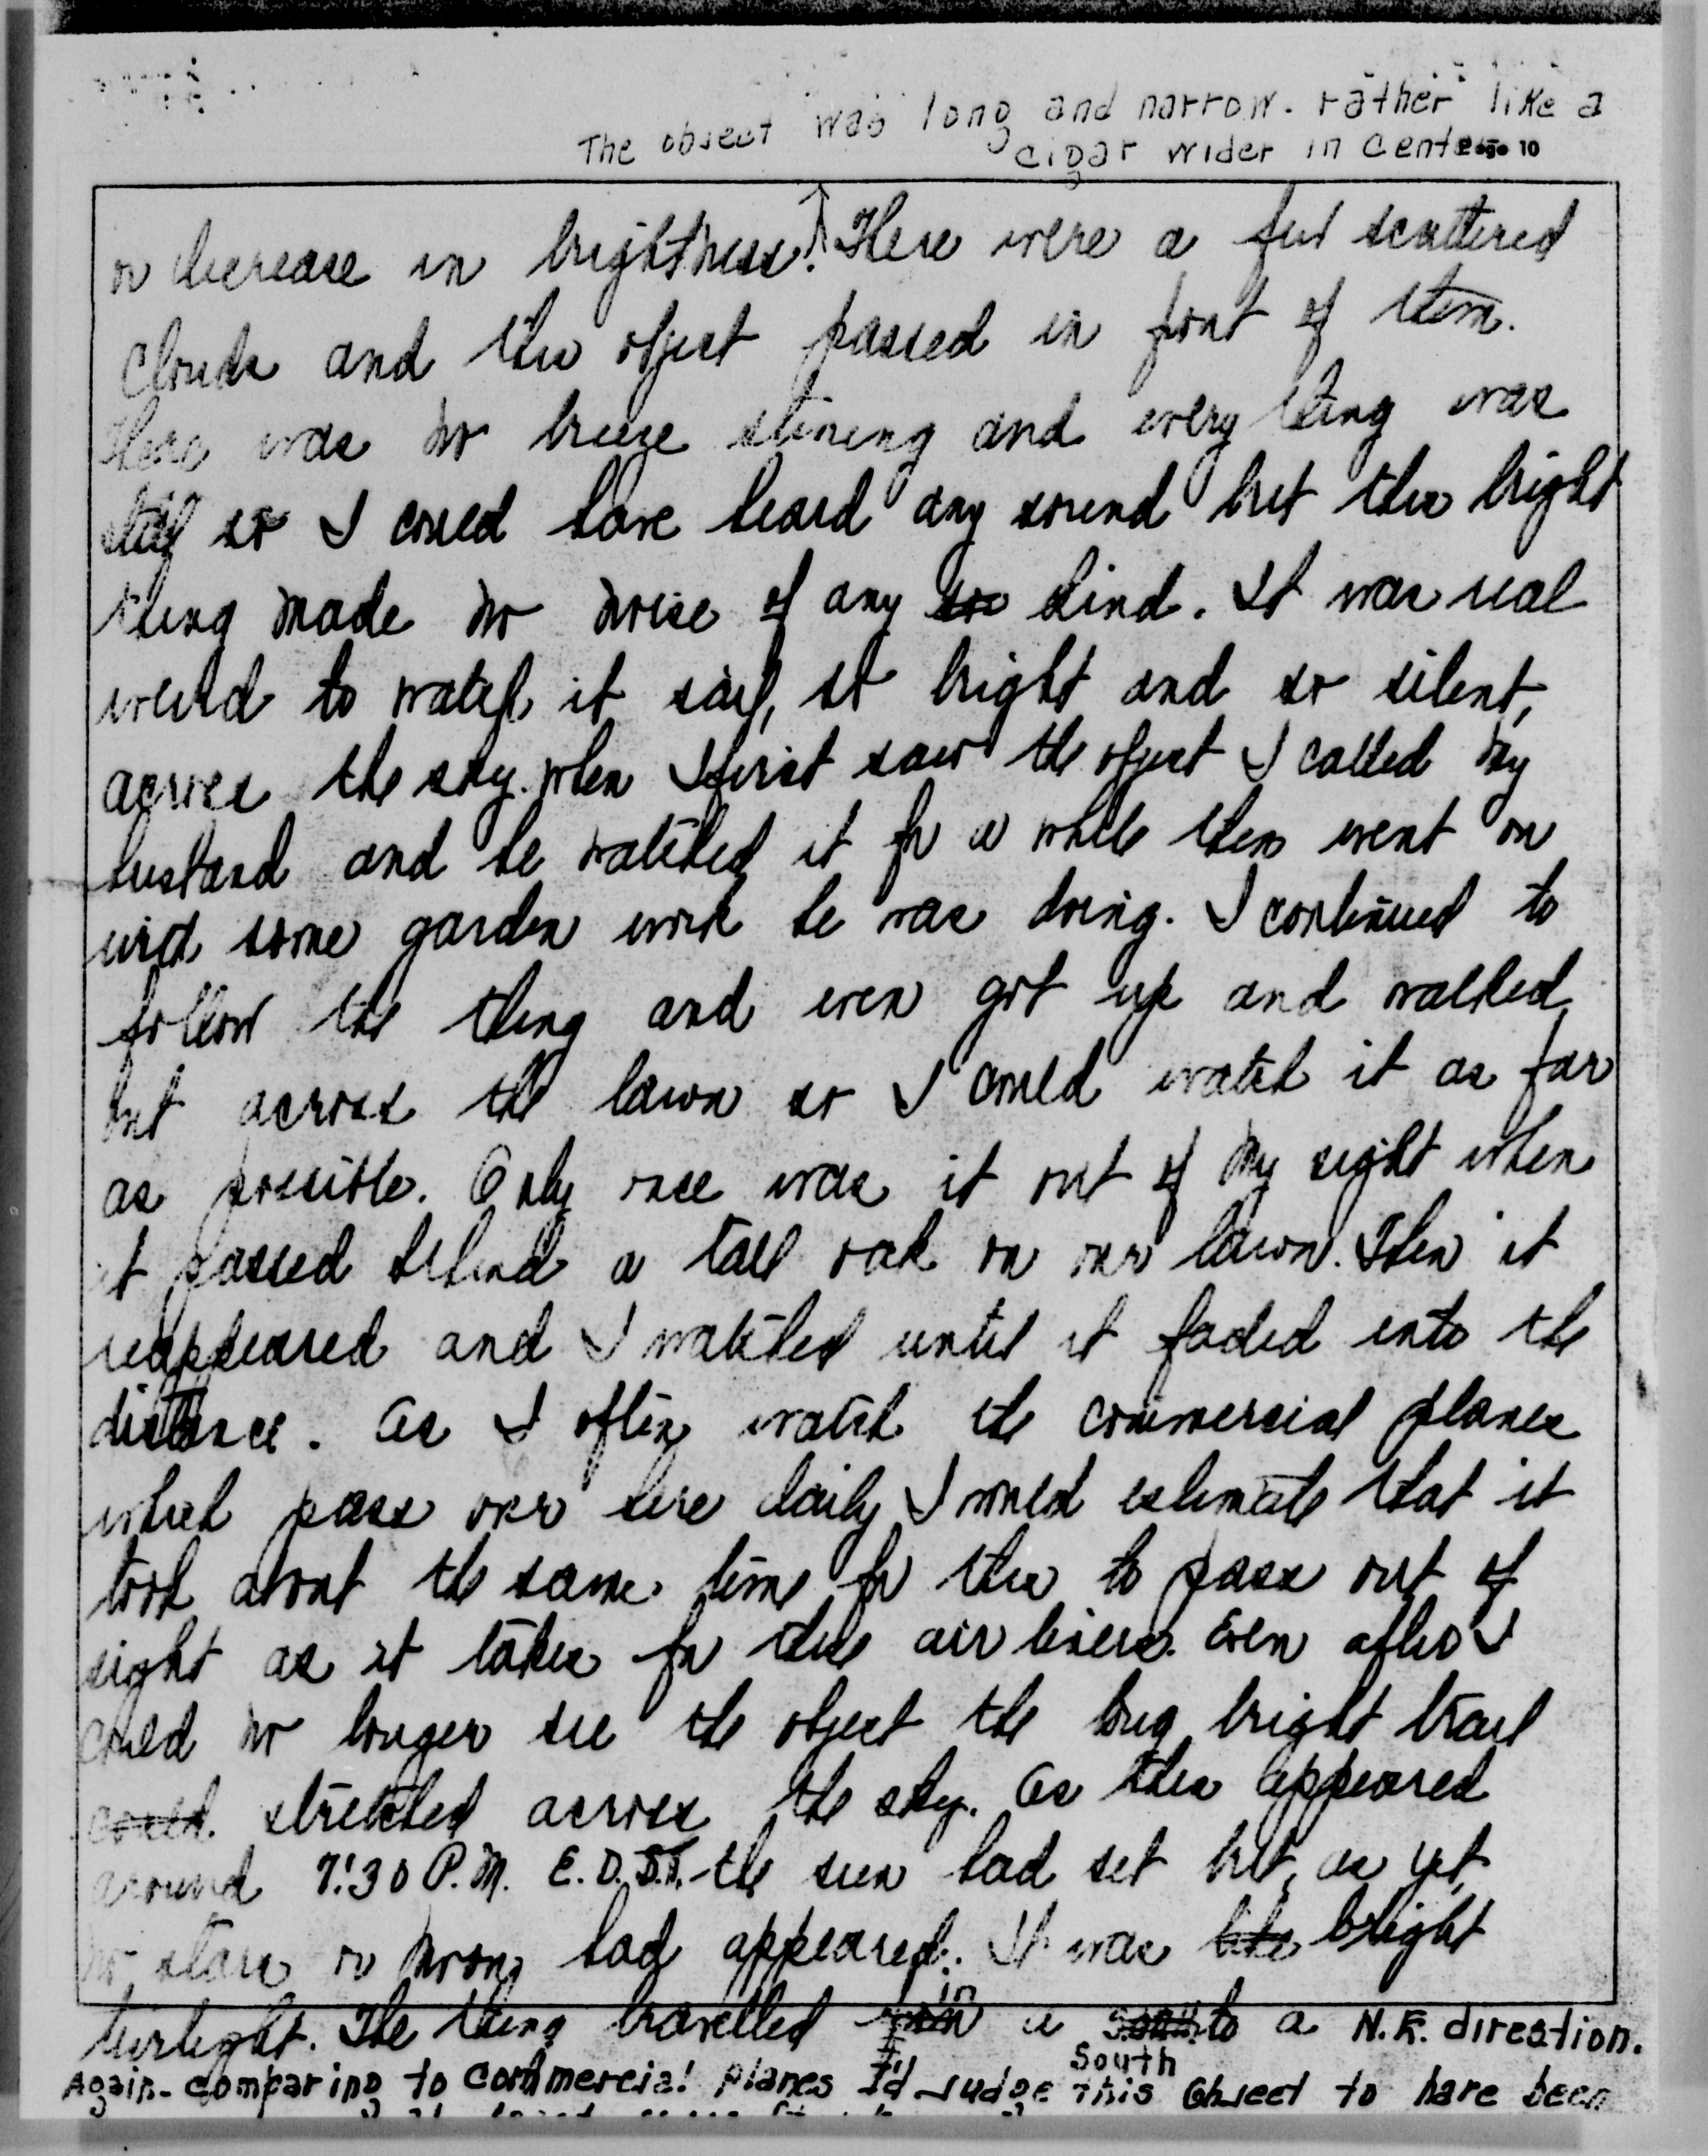 The object was long and narrow. rather like a
cigar wider in center
Page 10
or decrease in brightness. There were a few scattered
clouds and this object passed in front of them.
There was no breeze stirring and every thing was
still so I could have heard any sound but this bright
thing made no noise of any kind. It was real
weird to watch it sail, so bright and so silent,
across the sky. When I first saw the object I called my
husband and he watched it for a while then went on
with some garden work he was doing. I continued to
follow the thing and even got up and walked
out across the lawn so I could watch it as far
as possible. Only once was it out of my sight when
it passed behind a tall oak on our lawn. Then it
reappeared and I watched until it faded into the
distance. As I often watch the commercial planes
which pass over here daily I would estimate that it
took about the same time for this to pass out of
sight as it takes for the air liners. Even after I
could no longer see the object the long bright trail
could stretched across the sky. As this appeared
around 7:30 P.M. E.D.S.T. the sun had set but, as yet,
no stars or moon had appeared. It was like bright
twilight. The thing travelled in a South to a N.E. direction.
Again - comparing to commercial planes I'd judge this object to have been